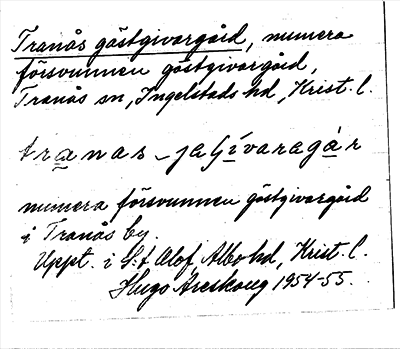 Tranås gästgivargård, numera
försvunnen gästgivargård,
Tranås sn, Ingelstads hd, Krist. l.
tranas-jaʃívaragàr
numera försvunnen gästgivargård
i Tranås by.
Uppt. i S:t Olof, Albo hd, Krist. l.
Hugo Areskoug 1954-55.